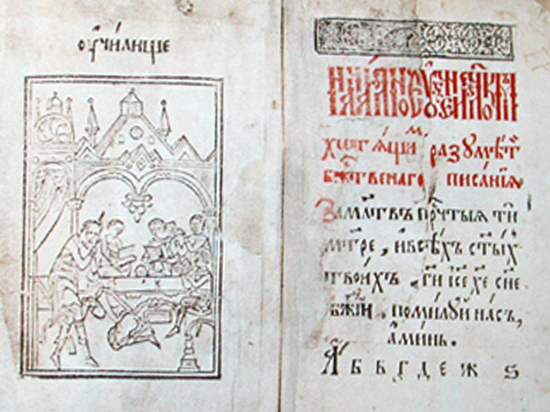 оу҆чи́лище
хотѧ́щиⷨ разꙋмѣ́ти
бжⷭ҇твенаго писа́нїѧ
За мл҃твъ прⷱ҇тыѧ ти
мт҃ре, и҆ всѣ́хъ ст҃ыⷯ
твои́хъ, гд҇и і҆с҃е хе҃ сн҃е
бж҃їи, поми́лꙋй на́съ,
а҆ми́нь.
А҆ б в г д е ж ѕ